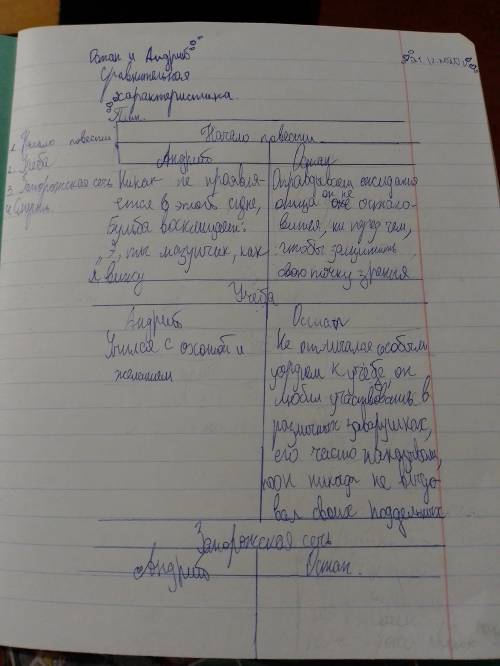 Остап и Андрий
Сравнительная
характеристика.
План.
1. Начало повести
2. Учёба
3. Запорожская сечь
4. Смерть
Начало повести
Андрий
Никак не проявля-
ется в этой сцене,
Бульба восклицает:
"Э, ты мазунчик, как
я вижу
Остап
Оправдывает ожидания
отца, он не остано-
вится, ни перед чем,
чтобы защитить
свою точку зрения
Учёба
Андрий
Учился с охотой и
желанием
Остап
Не отличался особым
рвением к учёбе, он
любил участвовать в
различных заварушках,
его часто наказывали,
но он никогда не выда
вал своих подельников
Запорожская сечь
Андрий
Остап.